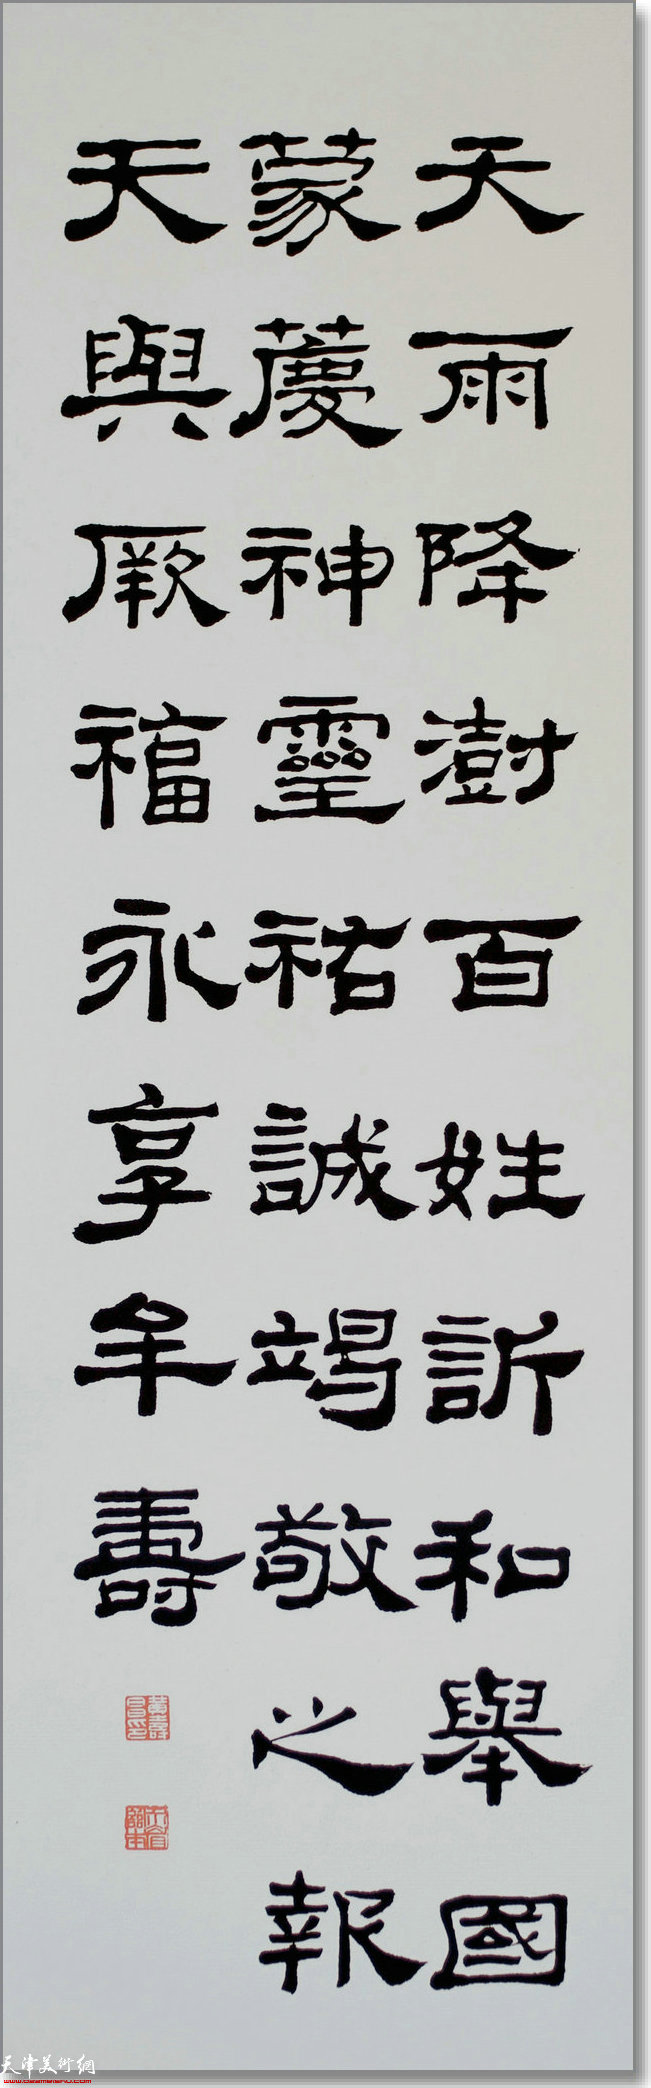 天雨降澍百姓訢和舉國
蒙薆神靈祐誠竭敬之報
天與厥福永享牟壽
天津美術網